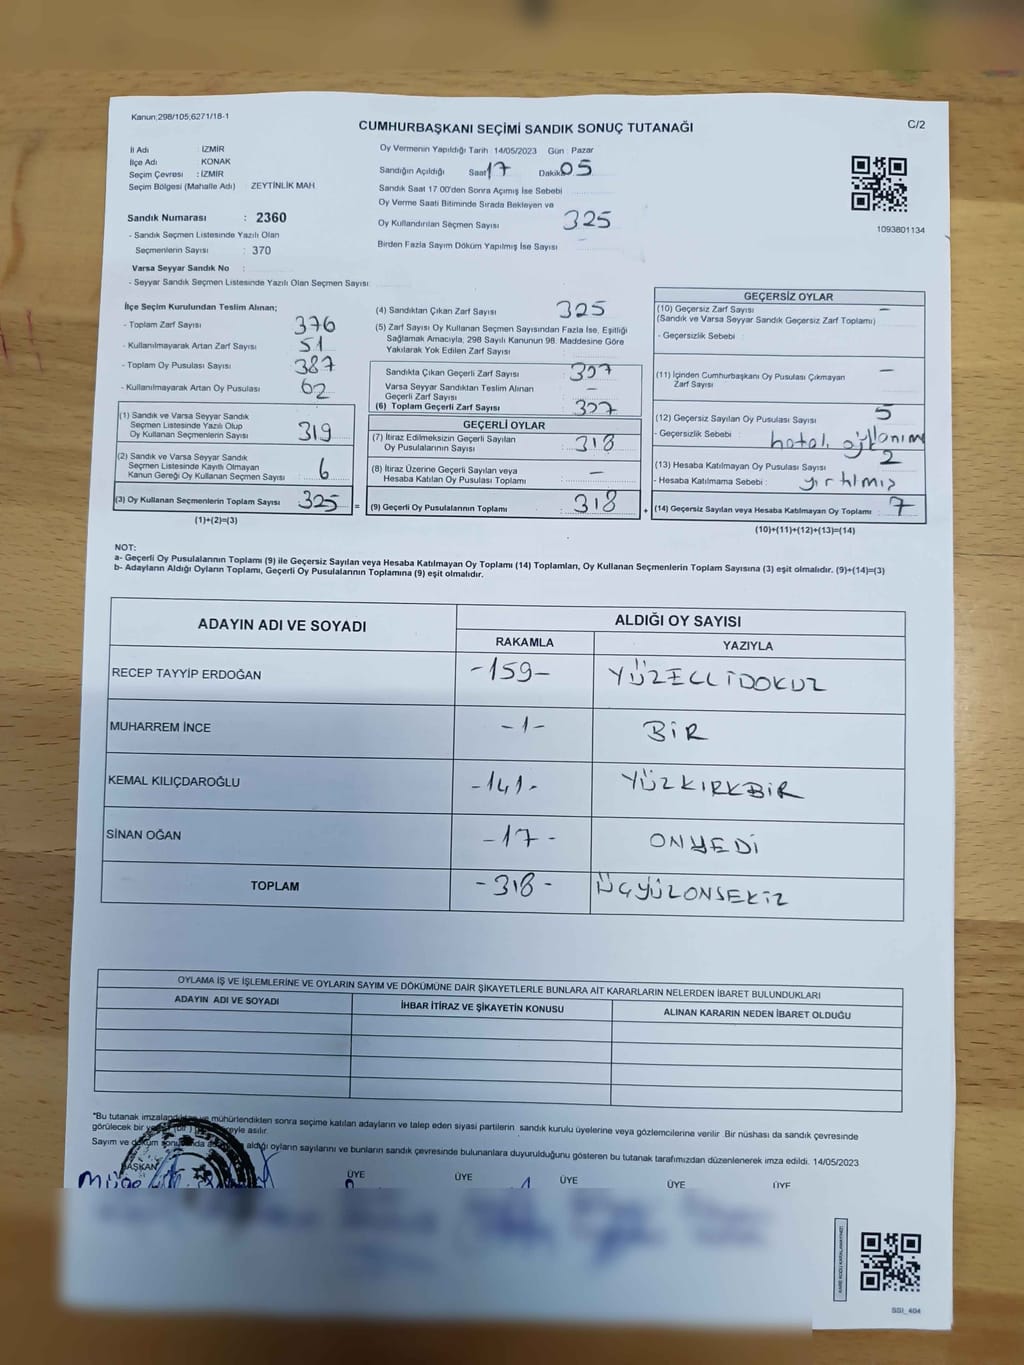 Kanun,298/105,6271/18-1
C/2
CUMHURBAŞKANI SEÇİMİ SANDIK SONUÇ TUTANAĞI
İl Adı : İZMİR
İlçe Adı : KONAK
Seçim Çevresi : İZMİR
Seçim Bölgesi (Mahalle Adı) : ZEYTİNLİK MAH.
Sandık Numarası : 2360
- Sandık Seçmen Listesinde Yazılı Olan
Seçmenlerin Sayısı : 370
Varsa Seyyar Sandık No :
- Seyyar Sandık Seçmen Listesinde Yazılı Olan Seçmen Sayısı:
Oy Vermenin Yapıldığı Tarih 14/05/2023 Gün : Pazar
Sandığın Açıldığı Saat 17 Dakika 05
Sandık Saat 17 00'den Sonra Açımış İse Sebebi
Oy Verme Saati Bitiminde Sırada Bekleyen ve
Oy Kullandırılan Seçmen Sayısı 325
Birden Fazla Sayım Döküm Yapılmış İse Sayısı -
1093801134
İlçe Seçim Kurulundan Teslim Alınan;
- Toplam Zarf Sayısı 376
- Kullanılmayarak Artan Zarf Sayısı 51
- Toplam Oy Pusulası Sayısı 387
- Kullanılmayarak Artan Oy Pusulası 62
(1) Sandık ve Varsa Seyyar Sandık
Seçmen Listesinde Yazılı Olup
Oy Kullanan Seçmenlerin Sayısı 319
(2) Sandık ve Varsa Seyyar Sandık
Seçmen Listesinde Kayıtlı Olmayan
Kanun Gereği Oy Kullanan Seçmen Sayısı 6
(3) Oy Kullanan Seçmenlerin Toplam Sayısı 325 =
(1)+(2)=(3)
(4) Sandıktan Çıkan Zarf Sayısı 325
(5) Zarf Sayısı Oy Kullanan Seçmen Sayısından Fazla İse, Eşitliği
Sağlamak Amacıyla, 298 Sayılı Kanunun 98. Maddesine Göre
Yakılarak Yok Edilen Zarf Sayısı
Sandıkta Çıkan Geçerli Zarf Sayısı
Varsa Seyyar Sandıktan Teslim Alınan
Geçerli Zarf Sayısı -
(6) Toplam Geçerli Zarf Sayısı
GEÇERLİ OYLAR
(7) İtiraz Edilmeksizin Geçerli Sayılan
Oy Pusulalarının Sayısı 318
(8) İtiraz Üzerine Geçerli Sayılan veya
Hesaba Katılan Oy Pusulası Toplamı -
(9) Geçerli Oy Pusulalarının Toplamı 318 +
GEÇERSİZ OYLAR
(10) Geçersiz Zarf Sayısı -
(Sandık ve Varsa Seyyar Sandık Geçersiz Zarf Toplamı)
- Geçersizlik Sebebi :
(11) İçinden Cumhurbaşkanı Oy Pusulası Çıkmayan
Zarf Sayısı -
(12) Geçersiz Sayılan Oy Pusulası Sayısı 5
- Geçersizlik Sebebi :
(13) Hesaba Katılmayan Oy Pusulası Sayısı 2
- Hesaba Katılmama Sebebi : yırtılmış
(14) Geçersiz Sayılan veya Hesaba Katılmayan Oy Toplamı : 7
(10)+(11)+(12)+(13)=(14)
NOT:
a- Geçerli Oy Pusulalarının Toplamı (9) ile Geçersiz Sayılan veya Hesaba Katılmayan Oy Toplamı (14) Toplamları, Oy Kullanan Seçmenlerin Toplam Sayısına (3) eşit olmalıdır. (9)+(14)=(3)
b- Adayların Aldığı Oyların Toplamı, Geçerli Oy Pusulalarının Toplamına (9) eşit olmalıdır.
ADAYIN ADI VE SOYADI
ALDIĞI OY SAYISI
RAKAMLA YAZIYLA
RECEP TAYYİP ERDOĞAN -159- YÜZELLİDOKUZ
MUHARREM İNCE -1- BİR
KEMAL KILIÇDAROĞLU -141- YÜZKIRKBİR
SİNAN OĞAN -17- ONYEDİ
TOPLAM -318- ÜÇYÜZONSEKİZ
OYLAMA İŞ VE İŞLEMLERİNE VE OYLARIN SAYIM VE DÖKÜMÜNE DAİR ŞİKAYETLERLE BUNLARA AİT KARARLARIN NELERDEN İBARET BULUNDUKLARI
ADAYIN ADI VE SOYADI İHBAR İTİRAZ VE ŞİKAYETİN KONUSU ALINAN KARARIN NEDEN İBARET OLDUĞU
*Bu tutanak imzalandıktan ve mühürlendikten sonra seçime katılan adayların ve talep eden siyasi partilerin sandık kurulu üyelerine veya gözlemcilerine verilir. Bir nüshası da sandık çevresinde
görülecek bir asılır.
Sayım ve döküm aldığı oyların sayılarını ve bunların sandık çevresinde bulunanlara duyurulduğunu gösteren bu tutanak tarafımızdan düzenlenerek imza edildi. 14/05/2023
BAŞKAN ÜYE ÜYE ÜYE ÜYE ÜYE
SSI_404